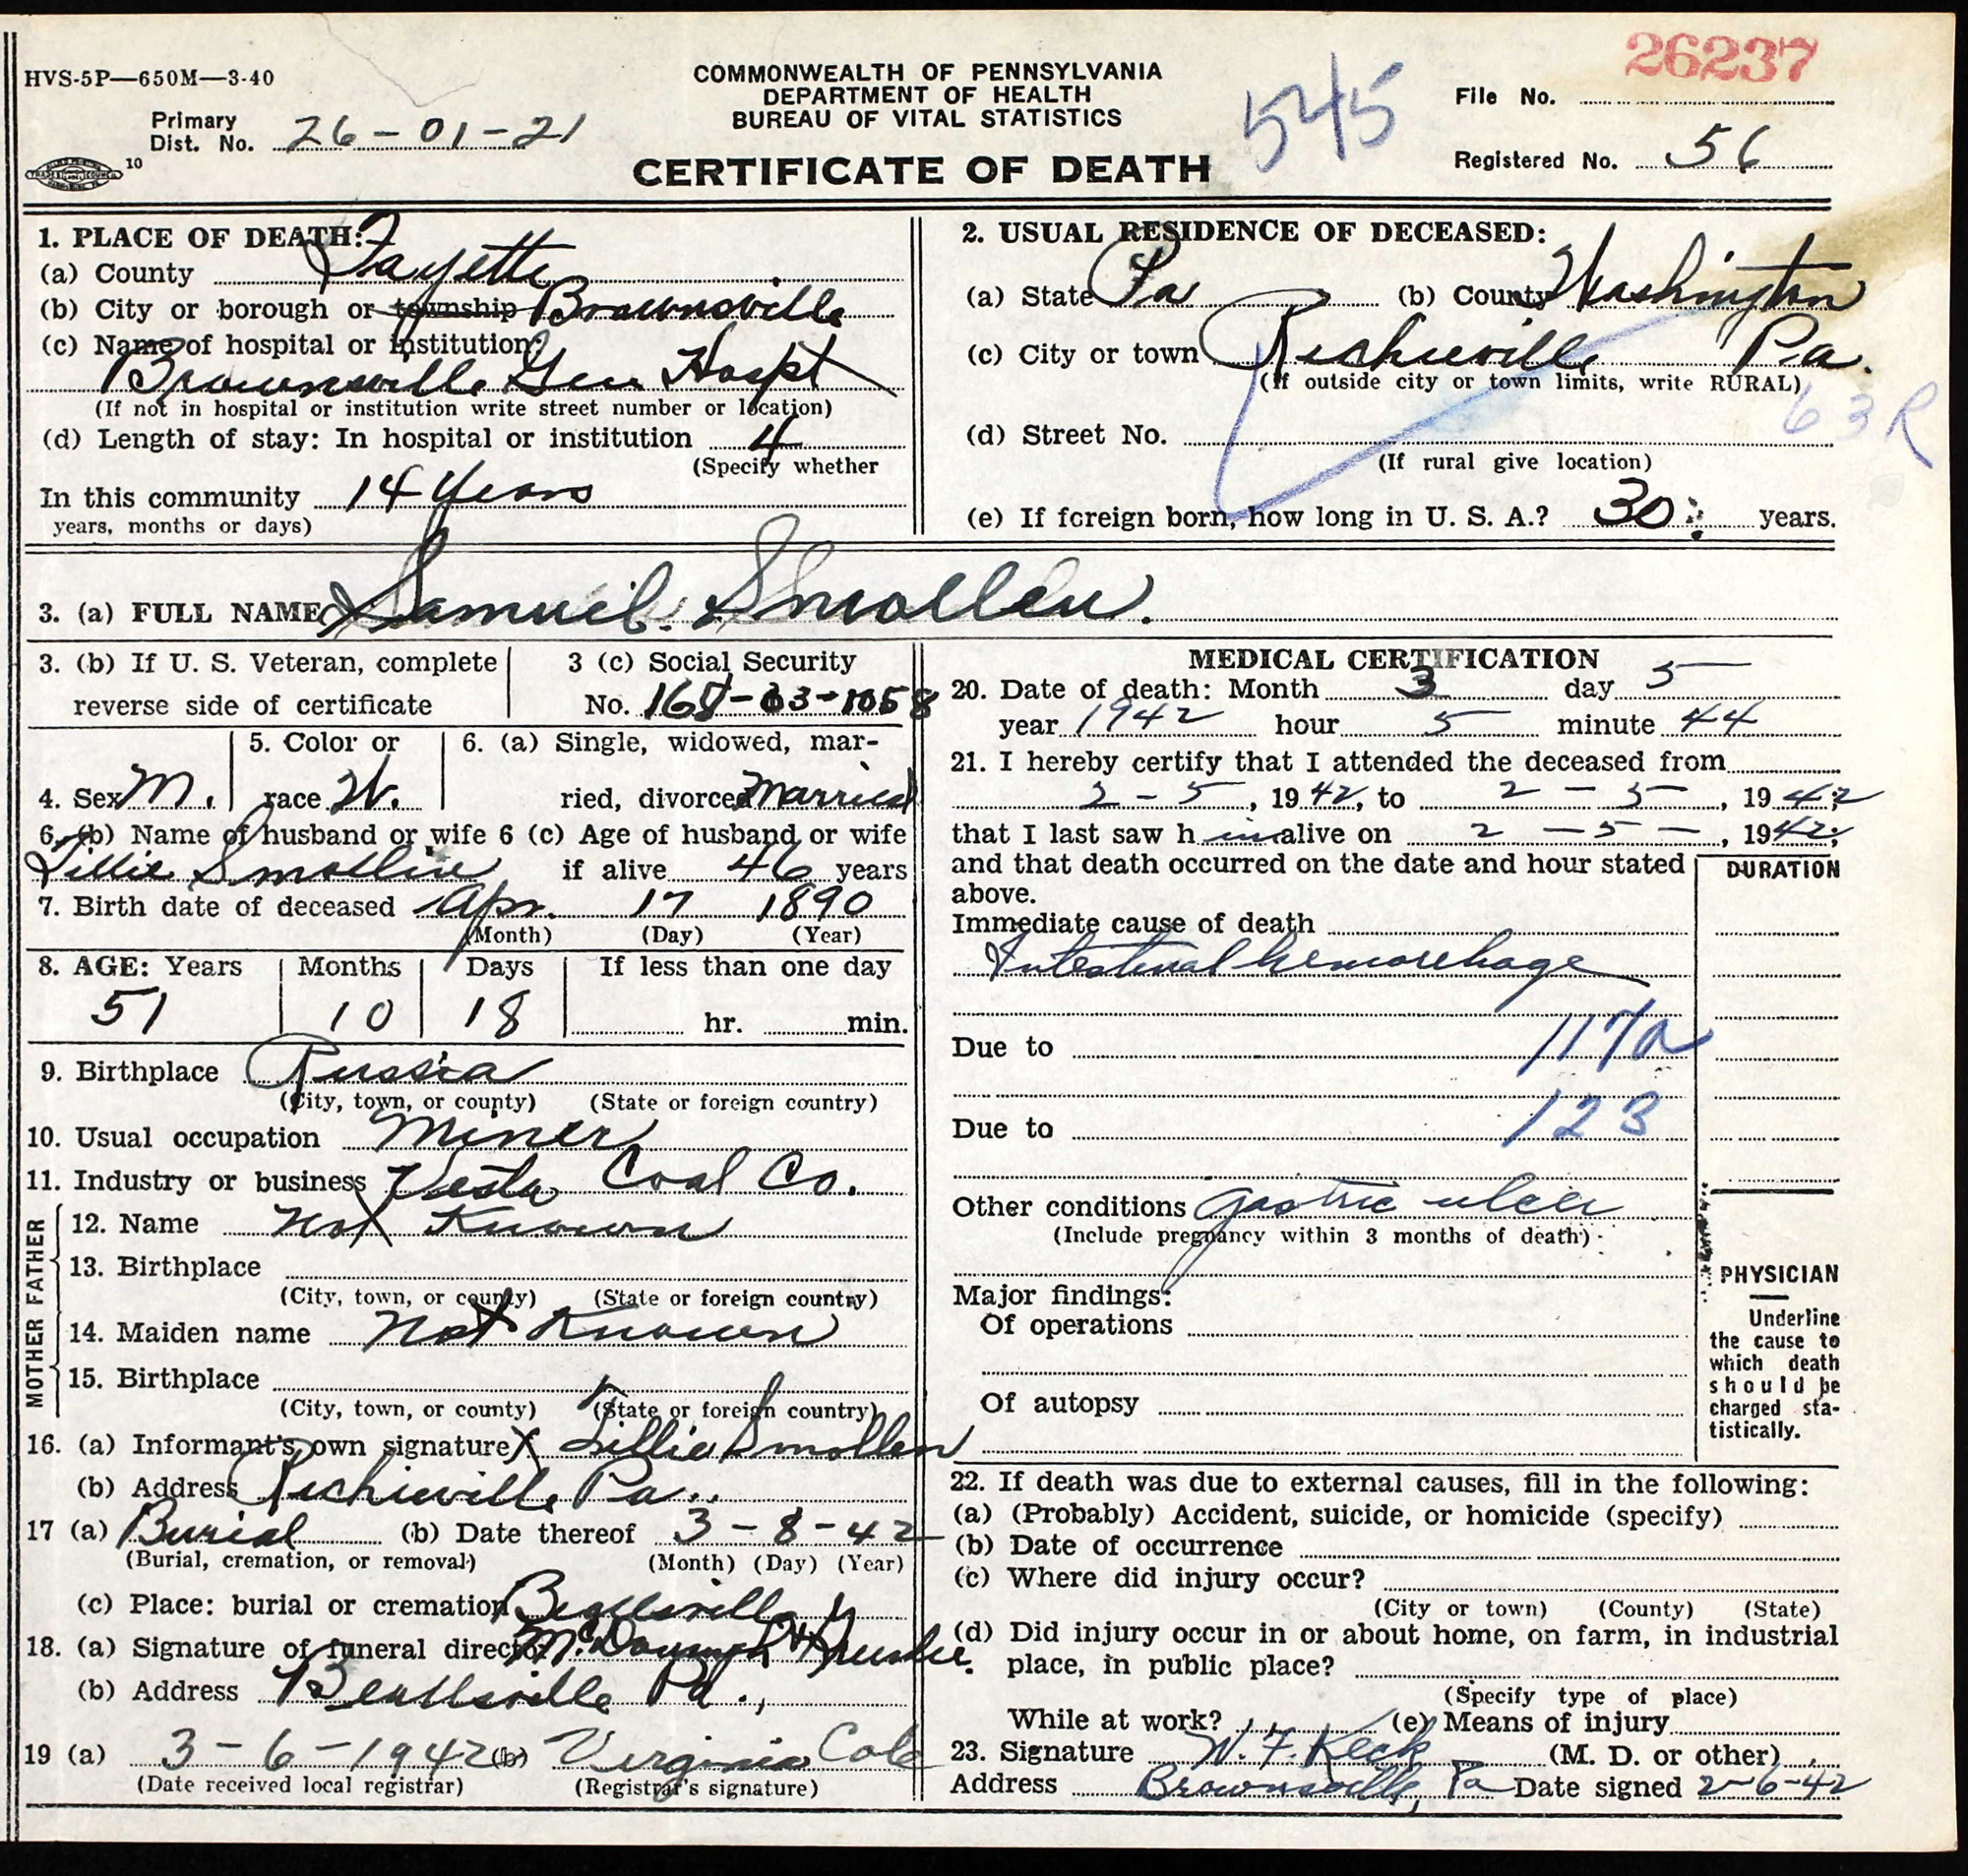 HVS-5P—650M—3-40
COMMONWEALTH OF PENNSYLVANIA
DEPARTMENT OF HEALTH
BUREAU OF VITAL STATISTICS
CERTIFICATE OF DEATH
545
26237
File No.
Primary
Dist. No. 26-01-21
10
Registered No. 56
1. PLACE OF DEATH:
(a) County Fayette
(b) City or borough or township Brownsville
(c) Name of hospital or institution:
Brownsville Gen Hospt
(If not in hospital or institution write street number or location)
(d) Length of stay: In hospital or institution 4
(Specify whether
In this community 14 Years
years, months or days)
2. USUAL RESIDENCE OF DECEASED:
(a) State Pa (b) County Washington
(c) City or town Richeyville Pa.
(If outside city or town limits, write RURAL)
63R
(d) Street No.
(If rural give location)
(e) If foreign born, how long in U. S. A.? 30 years.
3. (a) FULL NAME Samuel Smollen.
3. (b) If U. S. Veteran, complete
reverse side of certificate
3 (c) Social Security
No. 168-03-1058
4. Sex M.
5. Color or
race W.
6. (a) Single, widowed, mar-
ried, divorced Married
6. (b) Name of husband or wife
Lillie Smollen
6 (c) Age of husband or wife
if alive 46 years
7. Birth date of deceased Apr. 17 1890
(Month) (Day) (Year)
8. AGE: Years Months Days If less than one day
51 10 18 hr. min.
9. Birthplace Russia
(City, town, or county) (State or foreign country)
10. Usual occupation Miner
11. Industry or business Vesta Coal Co.
FATHER
12. Name Not Known
13. Birthplace
(City, town, or county) (State or foreign country)
MOTHER
14. Maiden name Not Known
15. Birthplace
(City, town, or county) (State or foreign country)
16. (a) Informant's own signature X Lillie Smollen
(b) Address Richieville Pa.
17 (a) Burial (b) Date thereof 3-8-42
(Burial, cremation, or removal) (Month) (Day) (Year)
(c) Place: burial or cremation Beallsville
18. (a) Signature of funeral director
(b) Address Beallsville Pa.,
19 (a) 3-6-1942 (b) Virginia Cole
(Date received local registrar) (Registrar's signature)
MEDICAL CERTIFICATION
20. Date of death: Month 3 day 5
year 1942 hour 5 minute 44
21. I hereby certify that I attended the deceased from
2-5, 1942, to 2-5-, 1942;
that I last saw h im alive on 2-5-, 1942;
and that death occurred on the date and hour stated
above.
DURATION
Immediate cause of death
Intestinal hemorehage
Due to 117a
Due to 123
Other conditions gastric ulcer
(Include pregnancy within 3 months of death)
Major findings:
Of operations
Of autopsy
PHYSICIAN
Underline
the cause to
which death
should be
charged sta-
tistically.
22. If death was due to external causes, fill in the following:
(a) (Probably) Accident, suicide, or homicide (specify)
(b) Date of occurrence
(c) Where did injury occur?
(City or town) (County) (State)
(d) Did injury occur in or about home, on farm, in industrial
place, in public place?
(Specify type of place)
While at work? (e) Means of injury
23. Signature W. F. Keck (M. D. or other)
Address Brownsville, Pa Date signed 2-6-42